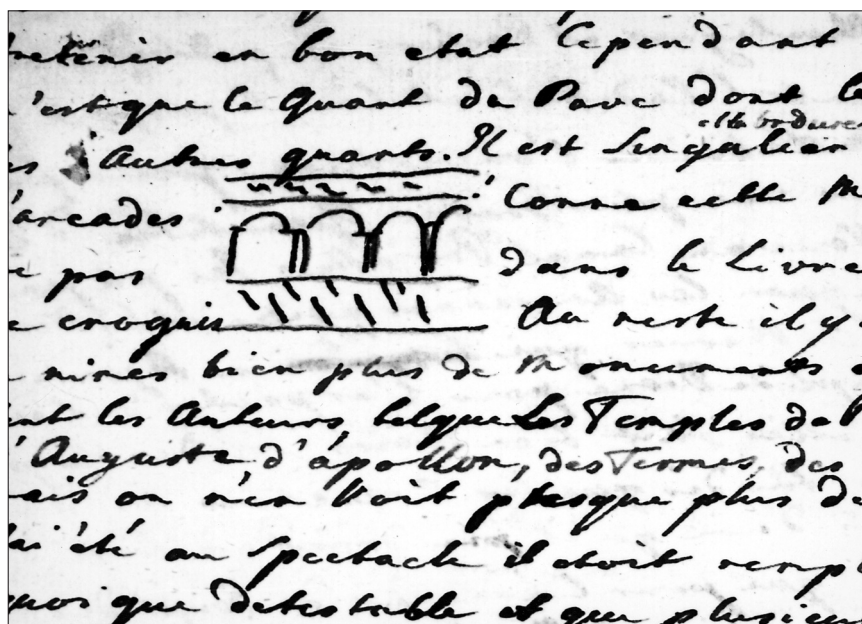 en bon etat Cependant
n'est que le Quart du Pavé dont le
autres quarts. Il est Singulier
d'arcades Comme cette
pas dans le Livre
croquis Au reste il y
nimes bien plus de Monuments
les Auteurs, telque Les Temples de
d'Auguste d'apollon, des Termes, des
mais on n'en Voit presque plus de
J'ai été au Spectacle il etoit
quoi que detestable et que